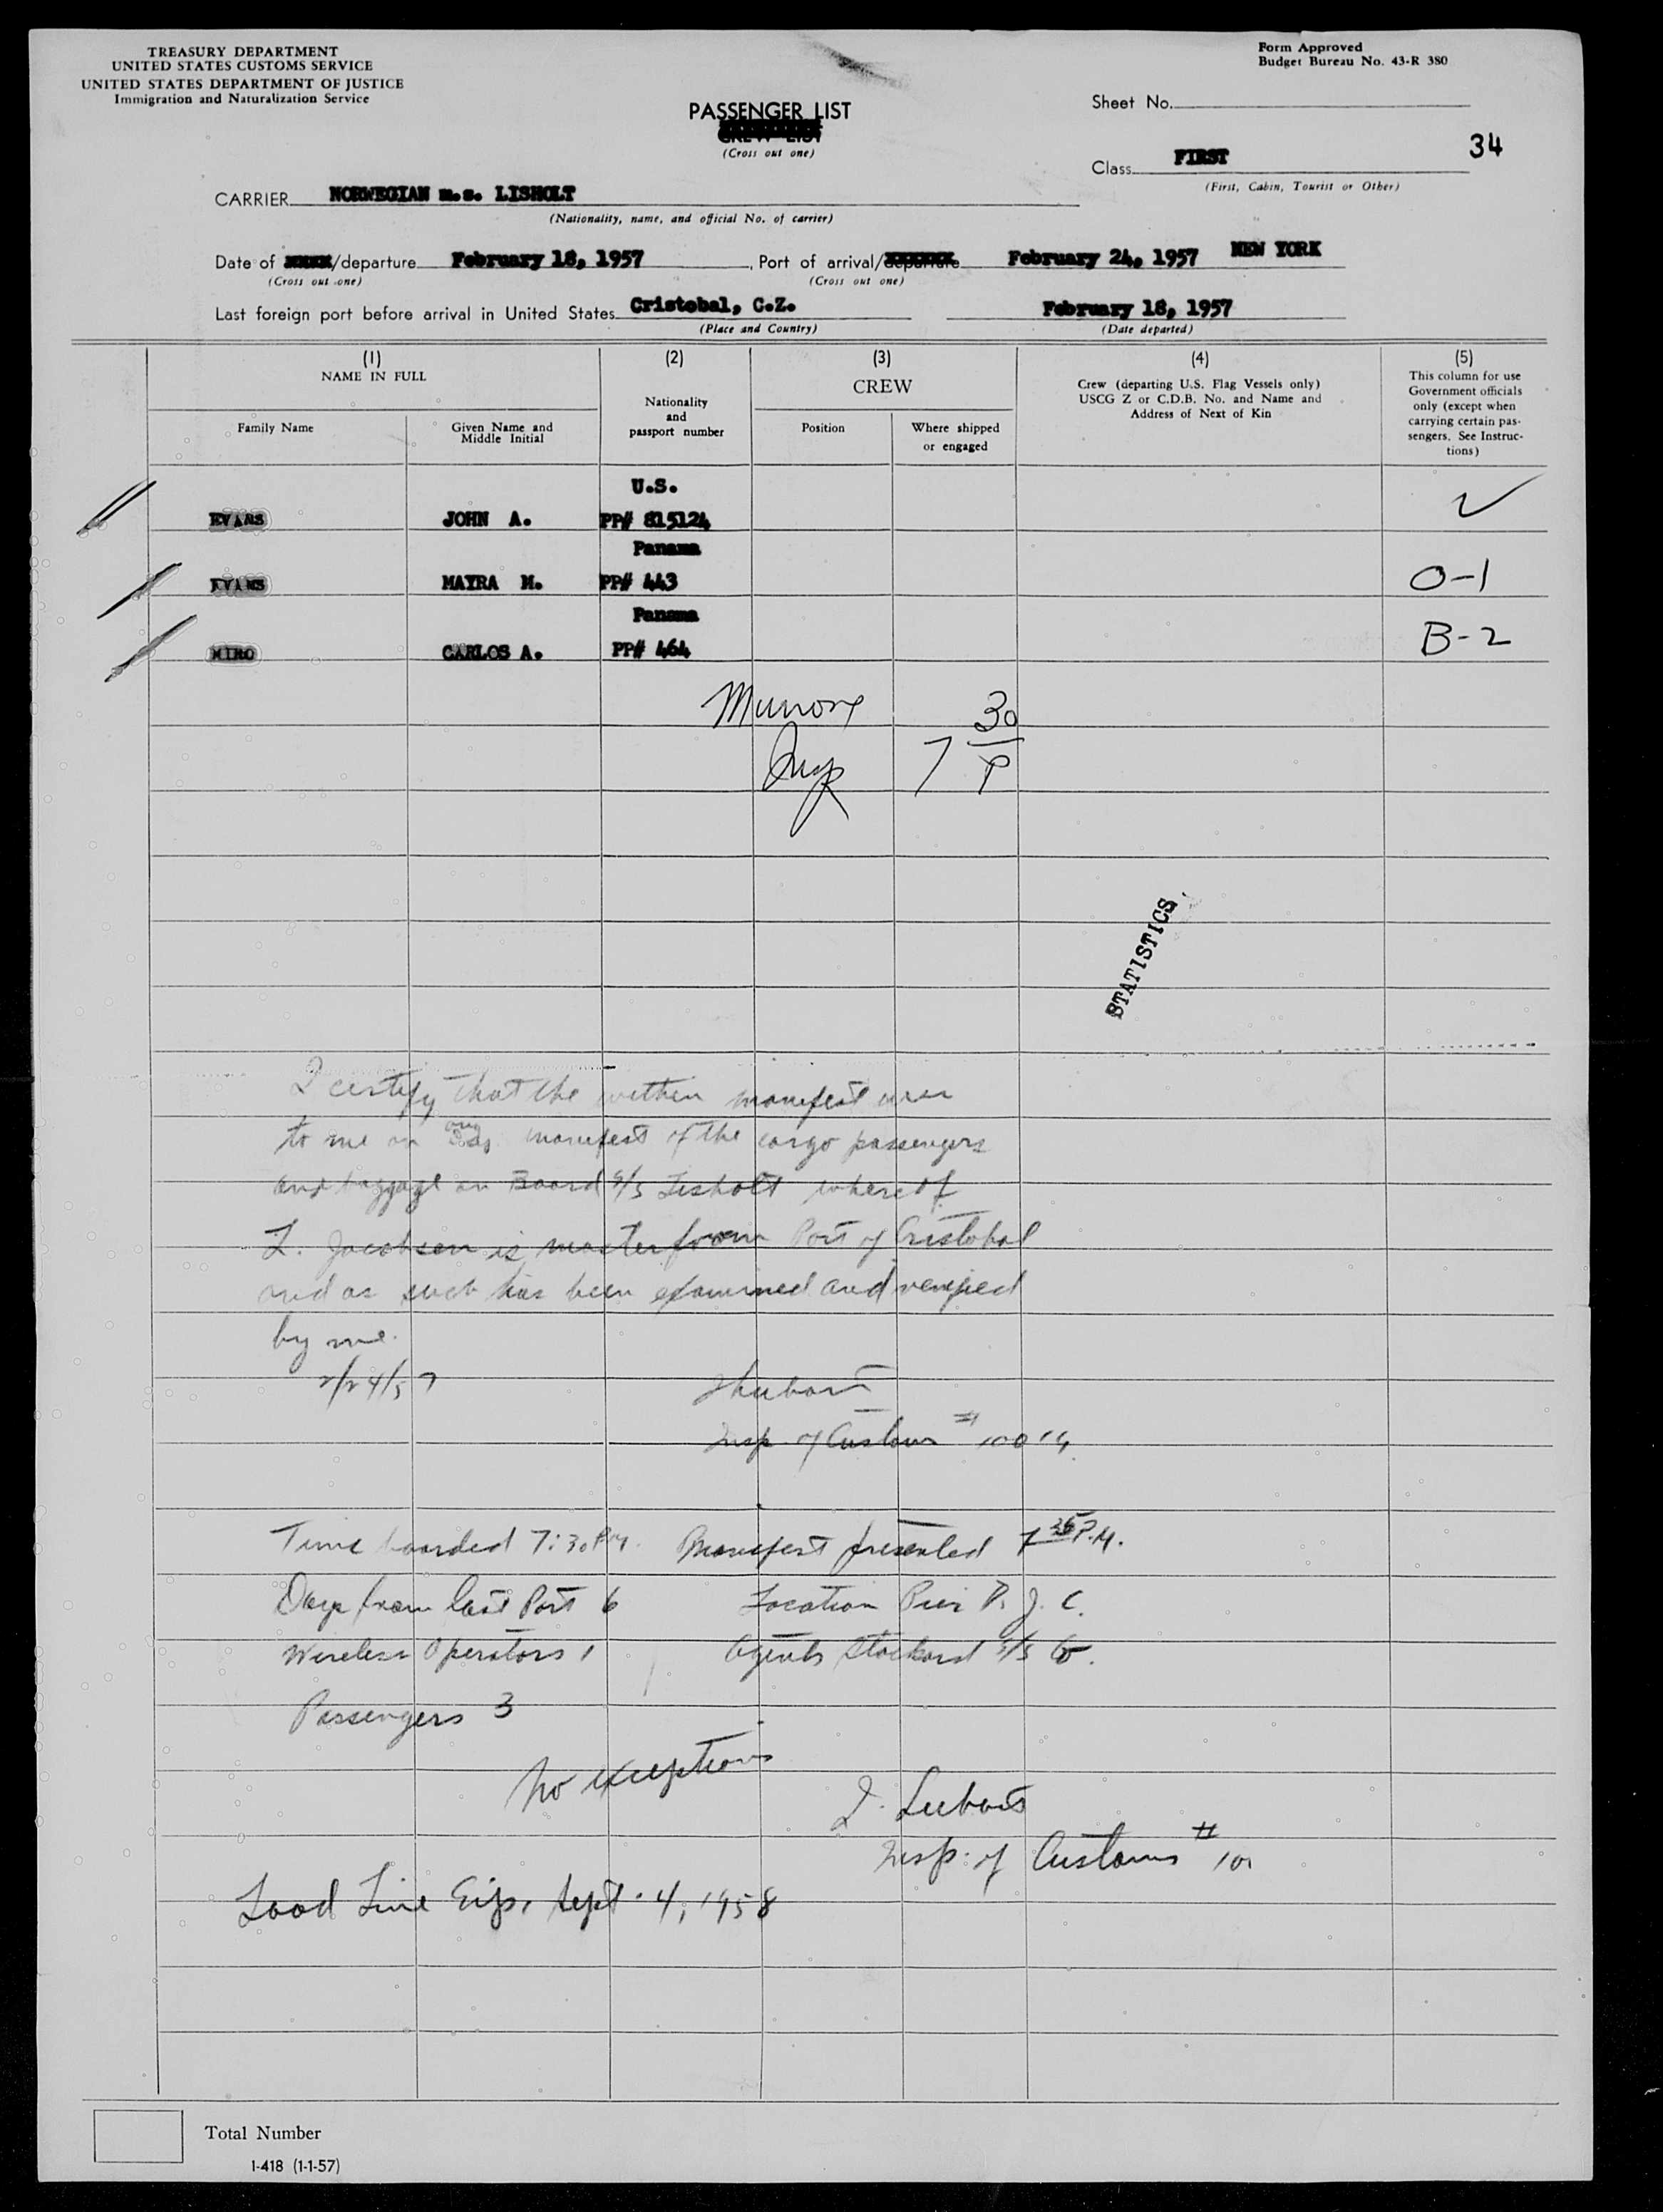 TREASURY DEPARTMENT
UNITED STATES CUSTOMS SERVICE
UNITED STATES DEPARTMENT OF JUSTICE
Immigration and Naturalization Service
Form Approved
Budget Bureau No. 43-R 380
PASSENGER LIST
CREW LIST
(Cross out one)
Sheet No.
34
Class FIRST
(First, Cabin, Tourist or Other)
CARRIER NORWEGIAN m.s. LISHOLT
(Nationality, name, and official No. of carrier)
Date of /departure February 18, 1957, Port of arrival/departure February 24, 1957 NEW YORK
(Cross out one) (Cross out one)
Last foreign port before arrival in United States Cristobal, C.Z. February 18, 1957
(Place and Country) (Date departed)
(1) (2) (3) (4) (5)
NAME IN FULL
Family Name
Given Name and
Middle Initial
Nationality
and
passport number
CREW
Position
Where shipped
or engaged
Crew (departing U.S. Flag Vessels only)
USCG Z or C.D.B. No. and Name and
Address of Next of Kin
This column for use
Government officials
only (except when
carrying certain pas-
sengers. See Instruc-
tions)
U.S.
EVANS JOHN A. PP# 815124
Panama
EVANS MAYRA M. PP# 443 O-1
Panama
MIRO CARLOS A. PP# 464 B-2
30
Insp 7 P
STATISTICS
I certify that the within manifest was
to me an manifest of the cargo passengers
and baggage on Board S/S Lisholt whereof
L. Jacobsen is master from Port of Cristobal
and as such has been examined and verified
by me.
2/24/57
Insp of Customs #
Time boarded 7:30 PM. Manifest presented 7 35 P.M.
Days from last Port 6 Location Pier D. J. C.
Wireless Operators 1 Agents Stockard S/S Co.
Passengers 3
No exceptions
Insp. of Customs #
Load Line Exp. Sept. 4, 1958
Total Number
I-418 (1-1-57)